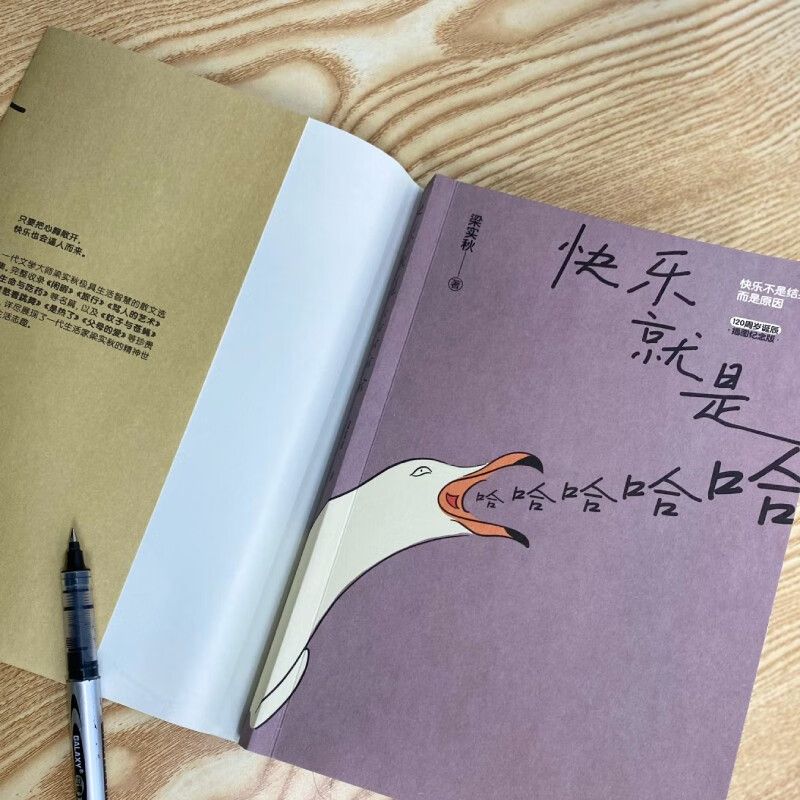 只要把心胸敞开，
快乐也会逼人而来。
一代文学大师梁实秋极具生活智慧的散文选
集。完整收录《旅行》《骂人的艺术》
等名篇 以及《蚊子与苍蝇》
《是热了》《父母的爱》等珍贵
，详尽展现了一代生活家梁实秋的精神世
生活志趣。
梁实秋 著
快乐
就是
哈哈哈哈哈
快乐不是结
而是原因
120周岁诞辰
插图纪念版
GALAXY